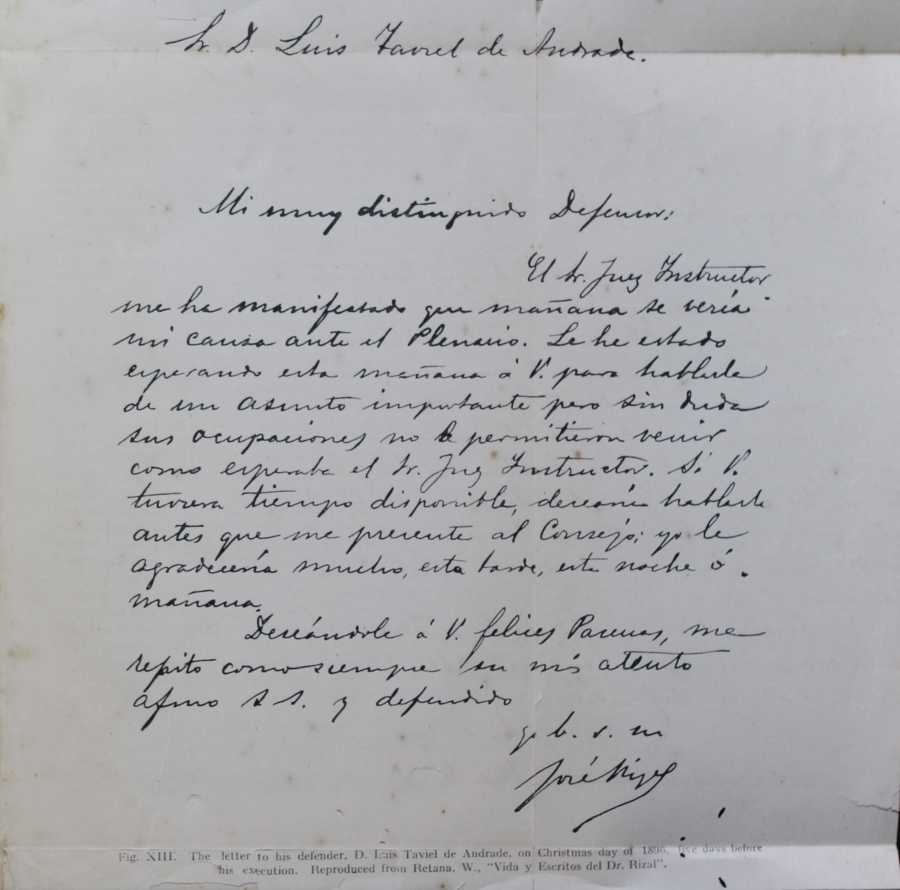 Sr. D. Luis Taviel de Andrade.
Mi muy distinguido Defensor:
El Sr. Juez Instructor
me ha manifestado que mañana se vería
mi causa ante el Plenario. Le he estado
esperando esta mañana á V. para hablarle
de un asunto importante pero sin duda
sus ocupaciones no le permitieron venir
como esperaba el Sr. Juez Instructor. Si V.
tuviera tiempo disponible, desearía hablarle
antes que me presente al Consejo; yo le
agradecería mucho, esta tarde, esta noche ó
mañana.
Deseándole á V. felices Pascuas, me
repito como siempre su más atento
afmo S S. y defendido
q. b. s. m
José Rizal
Fig. XIII. The letter to his defender, D. Luis Taviel de Andrade, on Christmas day of 1896, five days before
his execution. Reproduced from Retana, W., "Vida y Escritos del Dr. Rizal".